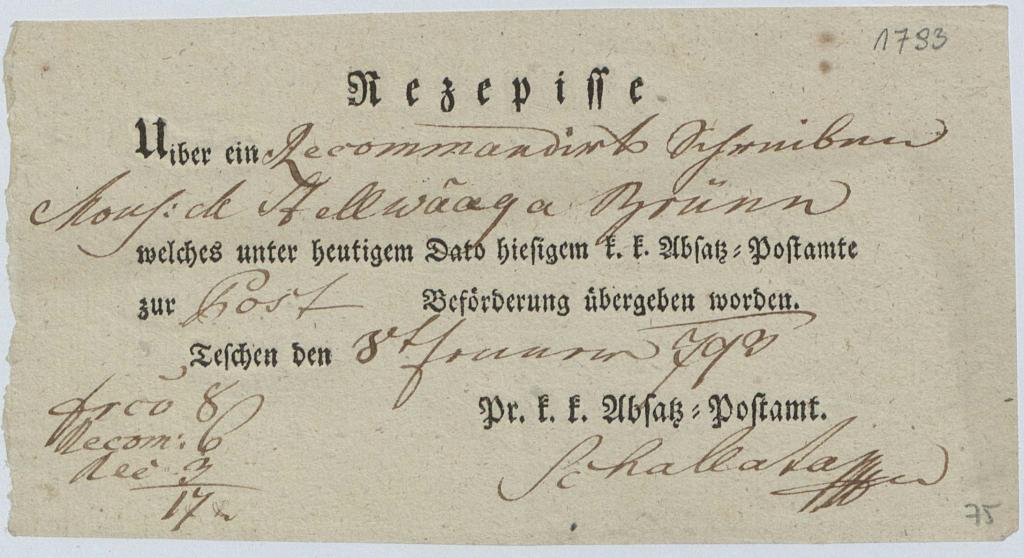 1793
Rezepisse
Uiber ein Recommandirts Schreiben
Mons: de Stellwãaga Brünn
welches unter heutigem Dato hiesigem k. k. Absatz=Postamte
zur Post Beförderung übergeben worden.
Teschen den 8t Jenner 793
Pr. k. k. Absatz=Postamt.
frco 8
Recom: 6
Rec 3
17
75